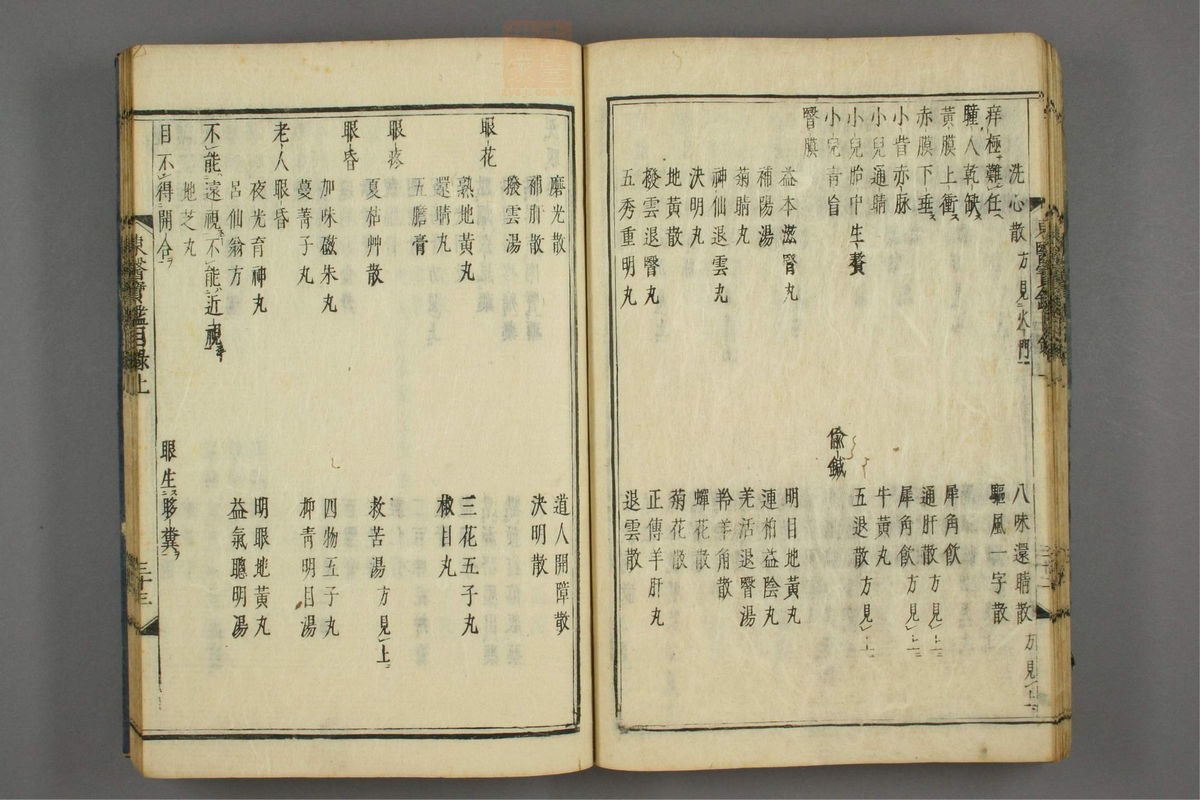 洗心散方見火門　八味還睛散方見上
痒極難任　驅風一字散
瞳人乾缺　犀角飲
黃膜上衝　通肝散方見上
赤膜下垂　犀角飲方見上
小眥赤脉　牛黃丸
小兒通睛　五退散方見上
小兒胎中生贅
小兒青盲　偸鍼
瞖膜
益本滋腎丸　明目地黃丸
補陽湯　連柏益陰丸
菊睛丸　羌活退瞖湯
神仙退雲丸　羚羊角散
決明丸　蟬花散
地黃散　菊花散
撥雲退瞖丸　正傳羊肝丸
五秀重明丸　退雲散
磨光散　道人開障散
補肝散　決明散
撥雲湯
眼花
熟地黃丸　三花五子丸
還睛丸　椒目丸
五膽膏
眼疼
夏枯艸散　救苦湯方見上
眼昏
加味磁朱丸　四物五子丸
蔓菁子丸　柳青明目湯
老人眼昏
夜光育神丸　明眼地黃丸
呂仙翁方　益氣聰明湯
不能遠視不能近視
地芝丸
目不得開合　眼生眵糞
東醫寶鑑目錄上　三十三